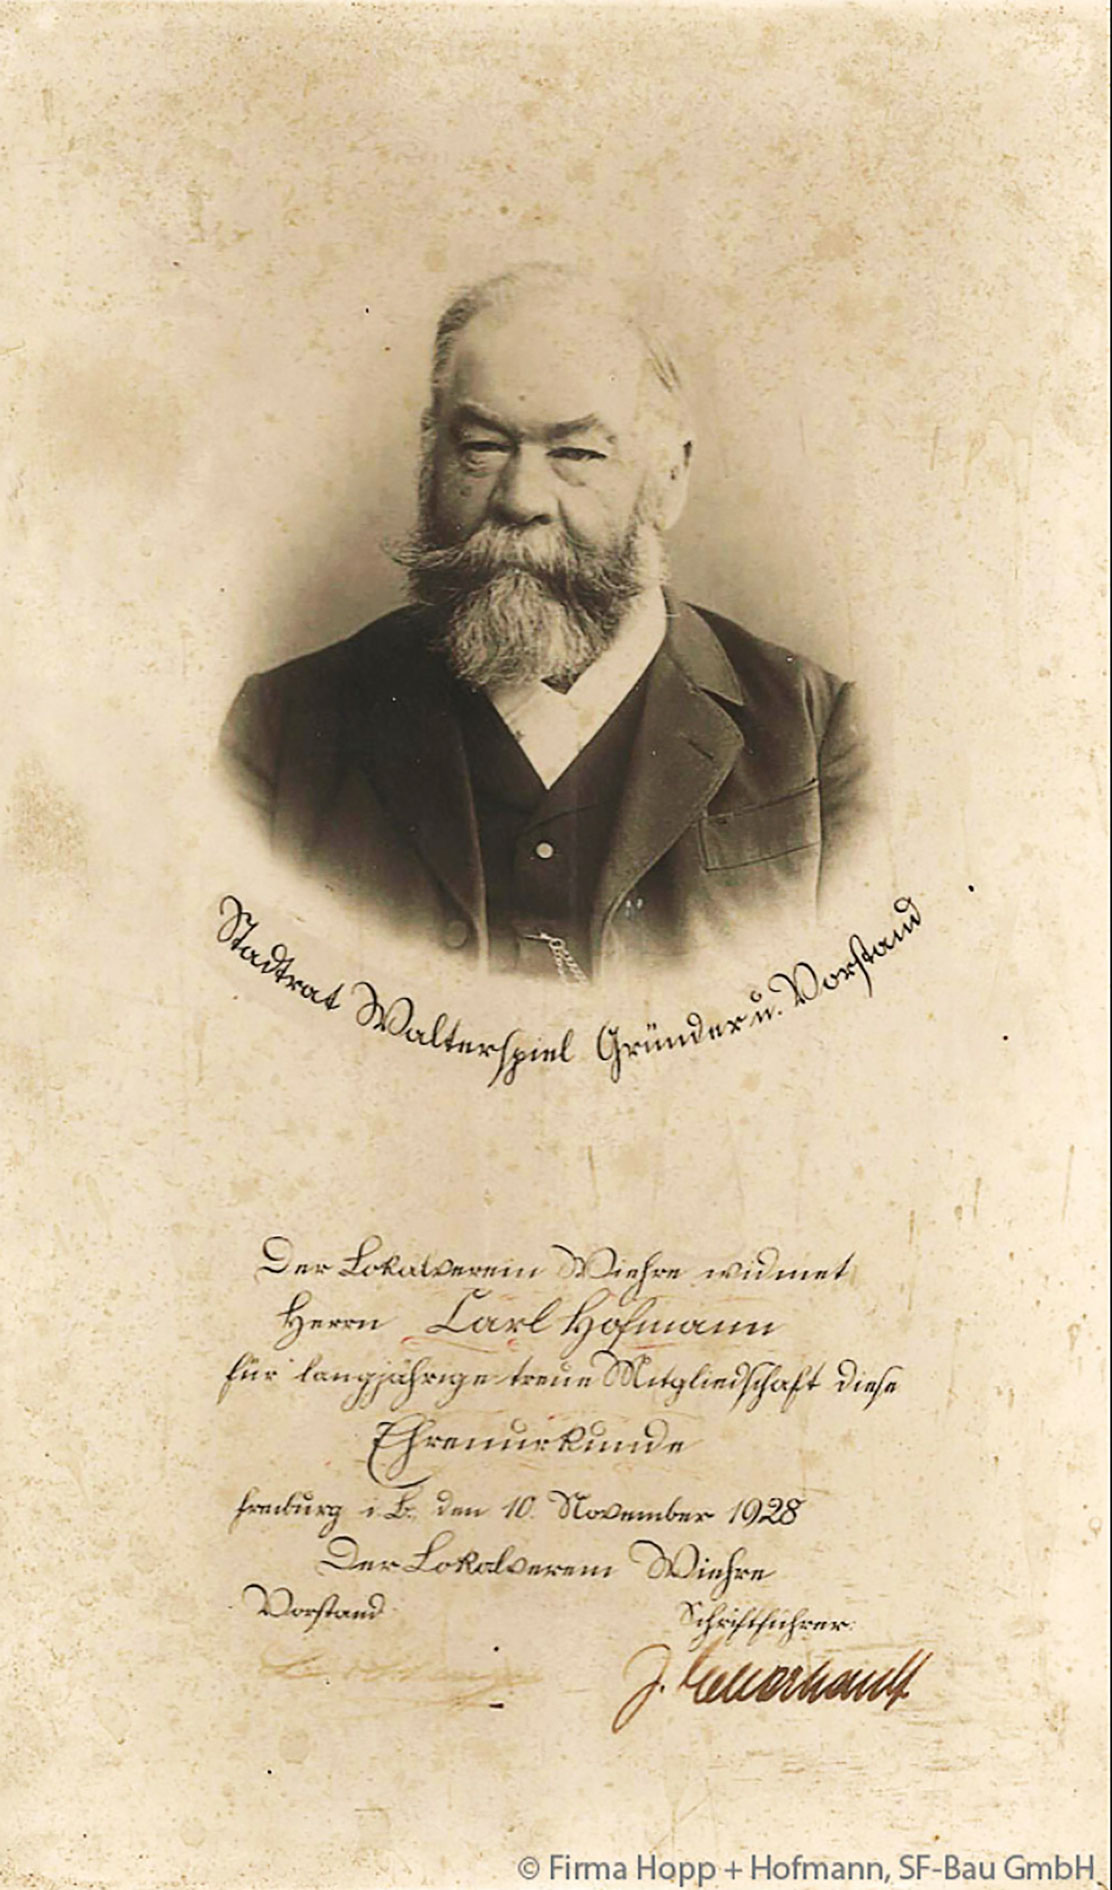 Stadtrat Walterspiel Gründer u. Vorstand
Der Lokalverein Wiehre widmet
Herrn Carl Hofmann
für langjährige treue Mitgliedschaft diese
Ehrenurkunde
Freiburg i. B. den 10. November 1928
Der Lokalverein Wiehre
Vorstand
Schriftführer:
J.
© Firma Hopp + Hofmann, SF-Bau GmbH